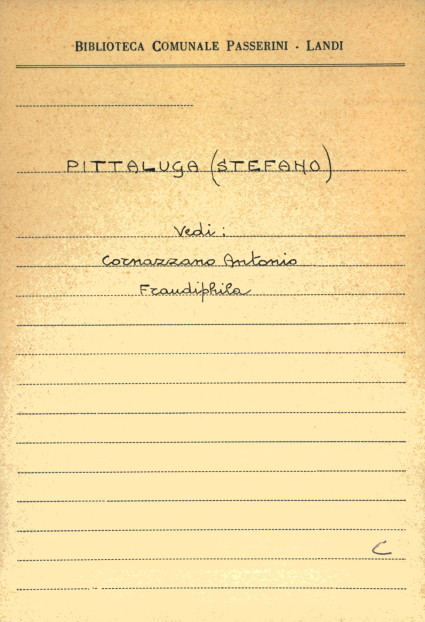 BIBLIOTECA COMUNALE PASSERINI - LANDI
PITTALUGA (STEFANO)
Vedi:
Cornazzano Antonio
Fraudiphila
C